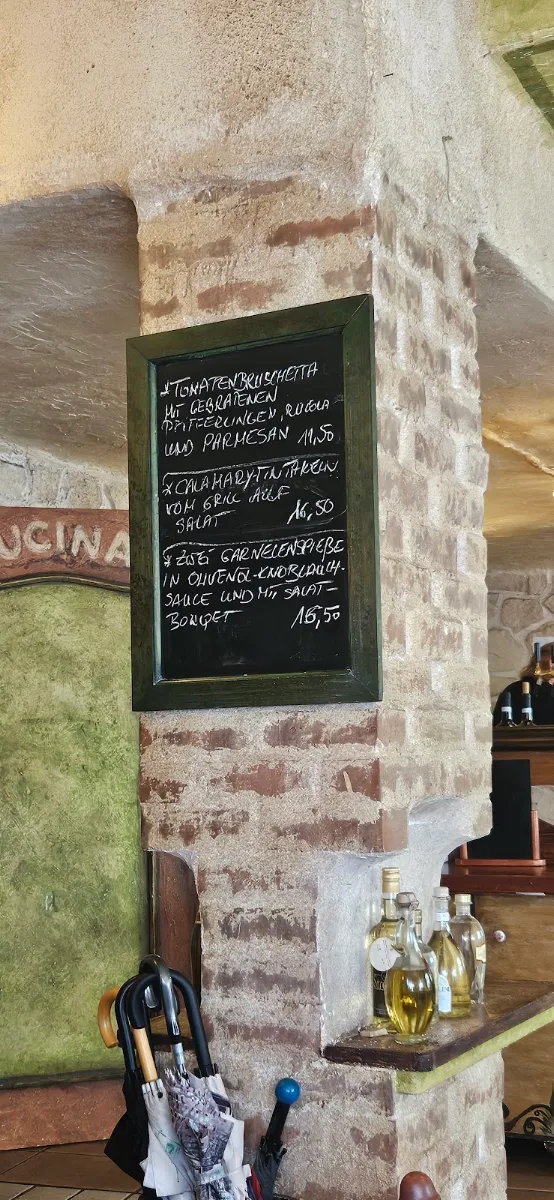 UCINA
* TOMATENBRUSCHETTA
MIT GEBRATENEN
PFIFFERLINGEN, RUCOLA
UND PARMESAN 11,50
* CALAMARY-TINTAKELN
VOM GRILL AUF
SALAT 16,50
* ZWEI GARNELENSPIEßE
IN OLIVENÖL-KNOBLAUCH-
SAUCE UND MIT SALAT-
BOUQET 16,50